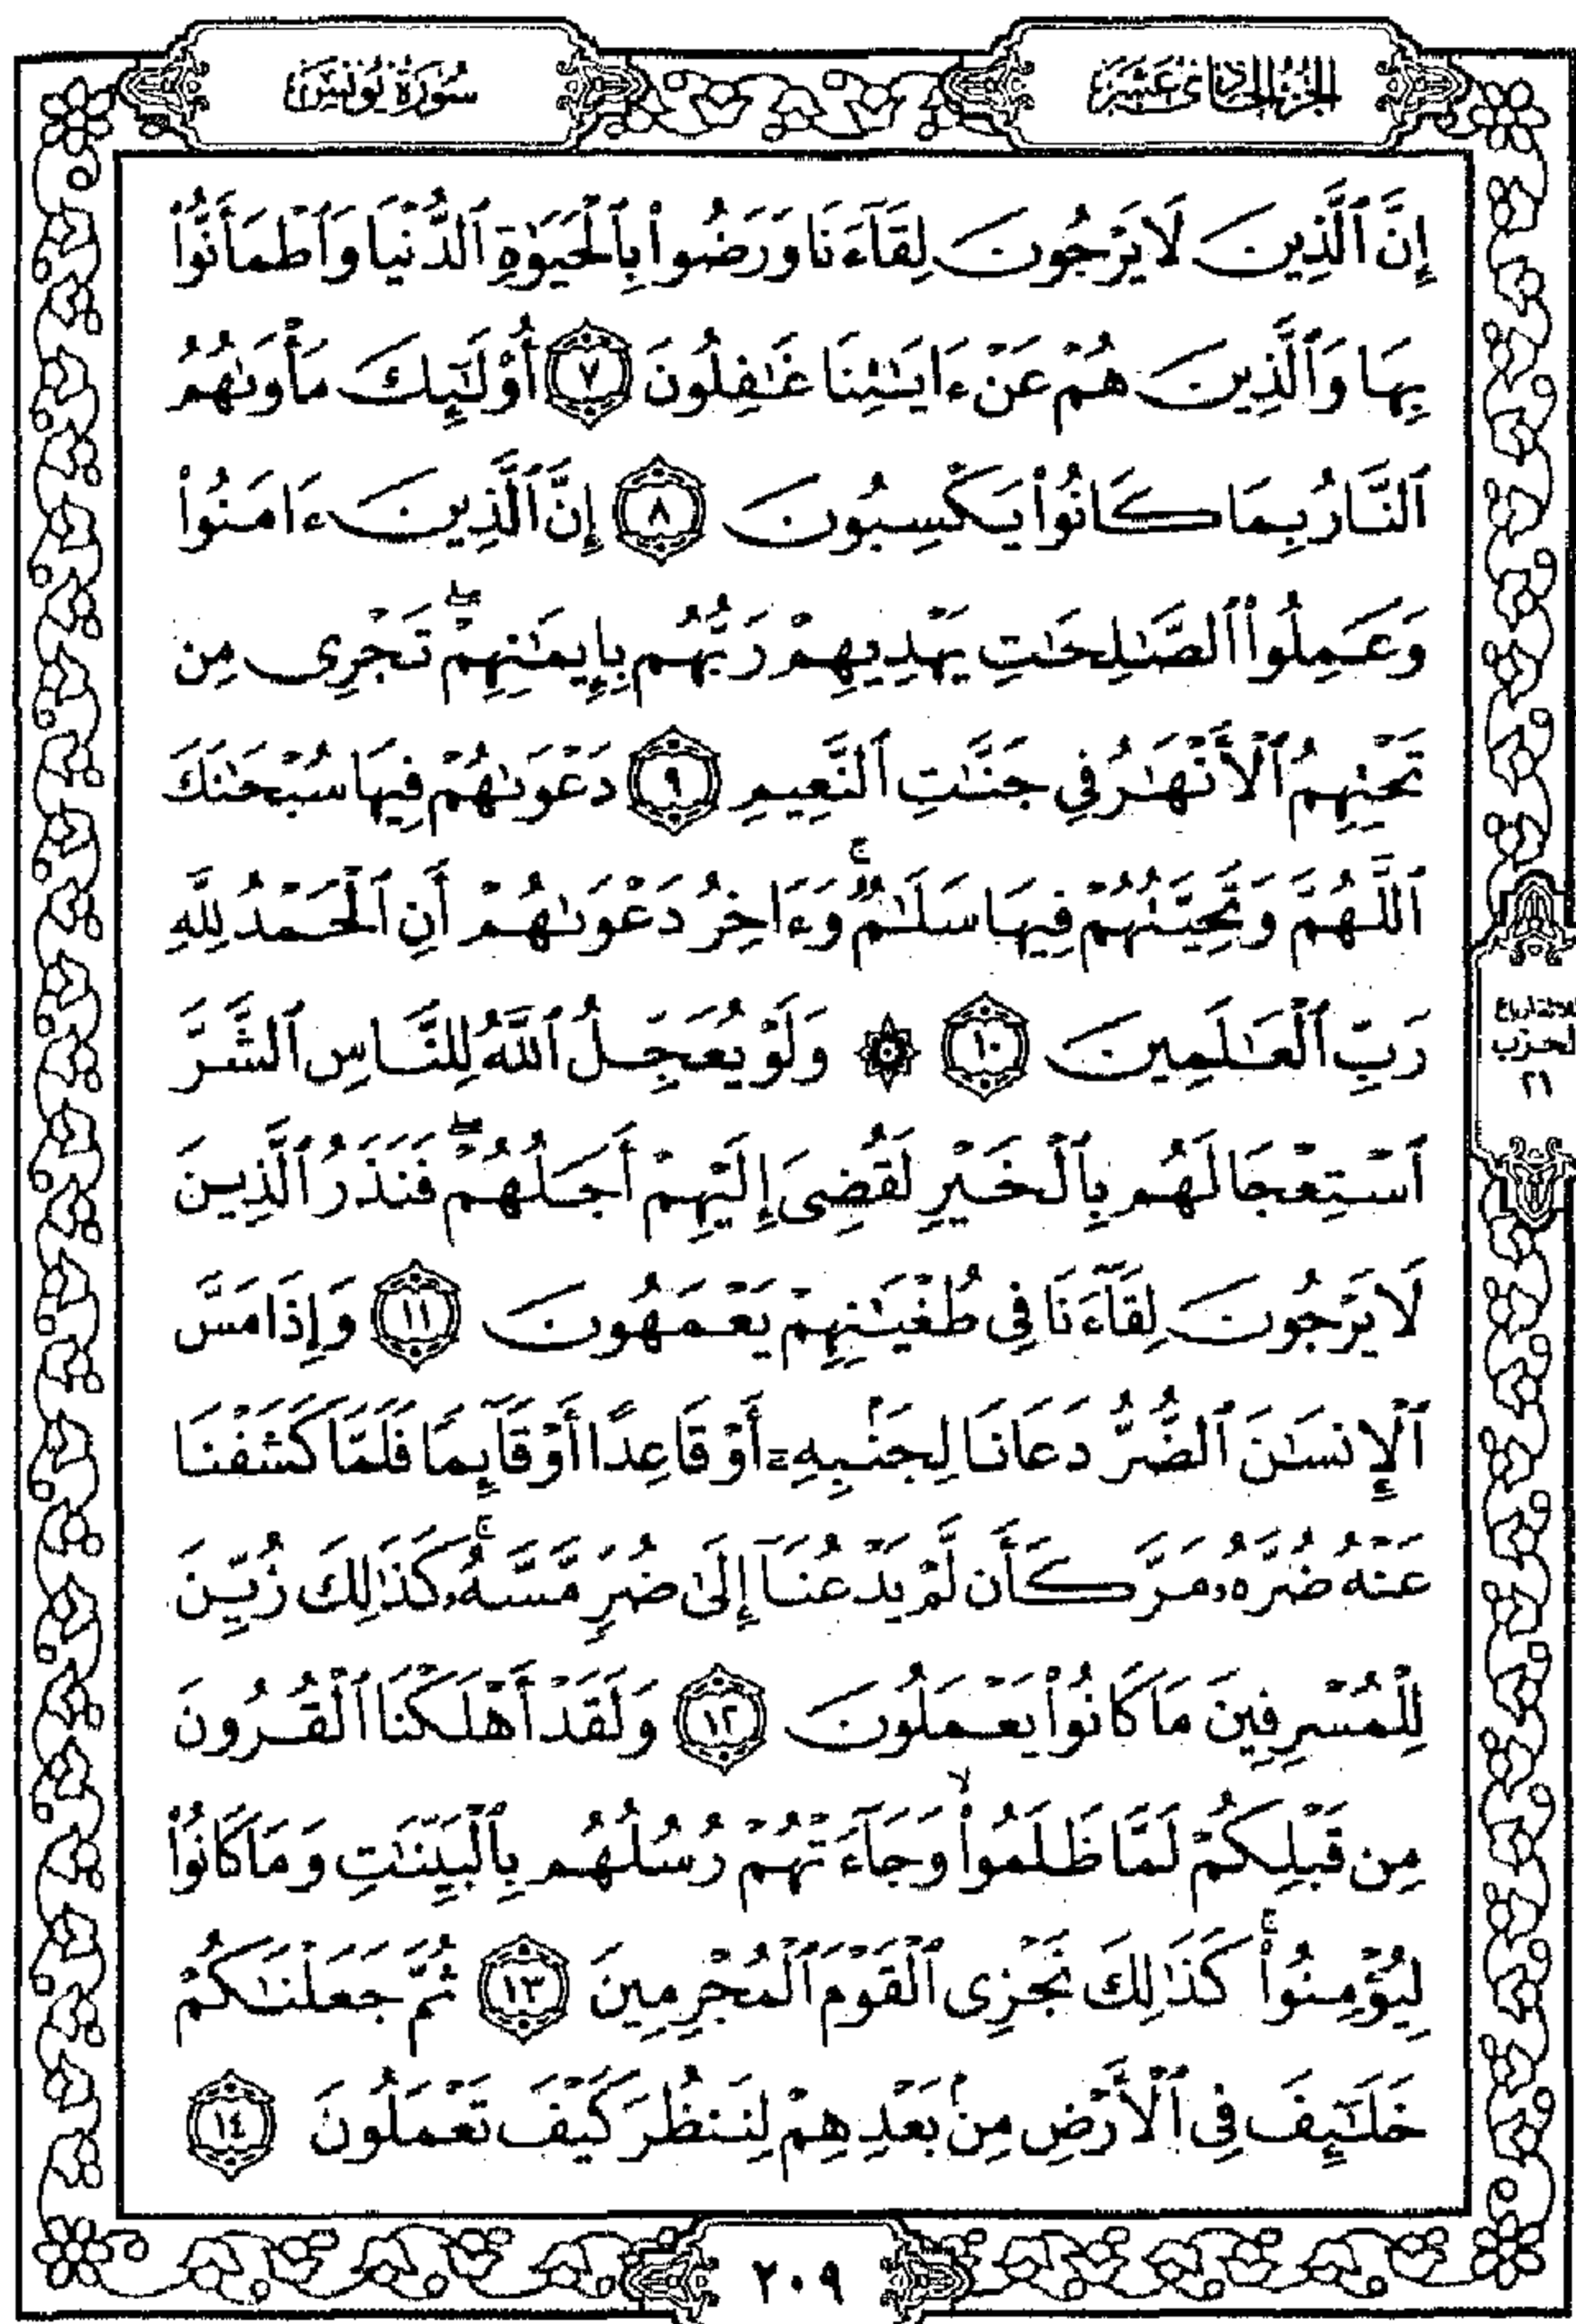 الجزء الحادي عشر
سورة يونس
إِنَّ ٱلَّذِينَ لَا يَرْجُونَ لِقَآءَنَا وَرَضُوا۟ بِٱلْحَيَوٰةِ ٱلدُّنْيَا وَٱطْمَأَنُّوا۟
بِهَا وَٱلَّذِينَ هُمْ عَنْ ءَايَـٰتِنَا غَـٰفِلُونَ ٧ أُو۟لَـٰٓئِكَ مَأْوَىٰهُمُ
ٱلنَّارُ بِمَا كَانُوا۟ يَكْسِبُونَ ٨ إِنَّ ٱلَّذِينَ ءَامَنُوا۟
وَعَمِلُوا۟ ٱلصَّـٰلِحَـٰتِ يَهْدِيهِمْ رَبُّهُم بِإِيمَـٰنِهِمْ ۖ تَجْرِى مِن
تَحْتِهِمُ ٱلْأَنْهَـٰرُ فِى جَنَّـٰتِ ٱلنَّعِيمِ ٩ دَعْوَىٰهُمْ فِيهَا سُبْحَـٰنَكَ
ٱللَّهُمَّ وَتَحِيَّتُهُمْ فِيهَا سَلَـٰمٌ ۚ وَءَاخِرُ دَعْوَىٰهُمْ أَنِ ٱلْحَمْدُ لِلَّهِ
رَبِّ ٱلْعَـٰلَمِينَ ١٠ ۞ وَلَوْ يُعَجِّلُ ٱللَّهُ لِلنَّاسِ ٱلشَّرَّ
ٱسْتِعْجَالَهُم بِٱلْخَيْرِ لَقُضِىَ إِلَيْهِمْ أَجَلُهُمْ ۖ فَنَذَرُ ٱلَّذِينَ
لَا يَرْجُونَ لِقَآءَنَا فِى طُغْيَـٰنِهِمْ يَعْمَهُونَ ١١ وَإِذَا مَسَّ
ٱلْإِنسَـٰنَ ٱلضُّرُّ دَعَانَا لِجَنۢبِهِۦٓ أَوْ قَاعِدًا أَوْ قَآئِمًا فَلَمَّا كَشَفْنَا
عَنْهُ ضُرَّهُۥ مَرَّ كَأَن لَّمْ يَدْعُنَآ إِلَىٰ ضُرٍّ مَّسَّهُۥ ۚ كَذَٰلِكَ زُيِّنَ
لِلْمُسْرِفِينَ مَا كَانُوا۟ يَعْمَلُونَ ١٢ وَلَقَدْ أَهْلَكْنَا ٱلْقُرُونَ
مِن قَبْلِكُمْ لَمَّا ظَلَمُوا۟ ۙ وَجَآءَتْهُمْ رُسُلُهُم بِٱلْبَيِّنَـٰتِ وَمَا كَانُوا۟
لِيُؤْمِنُوا۟ ۚ كَذَٰلِكَ نَجْزِى ٱلْقَوْمَ ٱلْمُجْرِمِينَ ١٣ ثُمَّ جَعَلْنَـٰكُمْ
خَلَـٰٓئِفَ فِى ٱلْأَرْضِ مِنۢ بَعْدِهِمْ لِنَنظُرَ كَيْفَ تَعْمَلُونَ ١٤
الحزب
٢١
٢٠٩